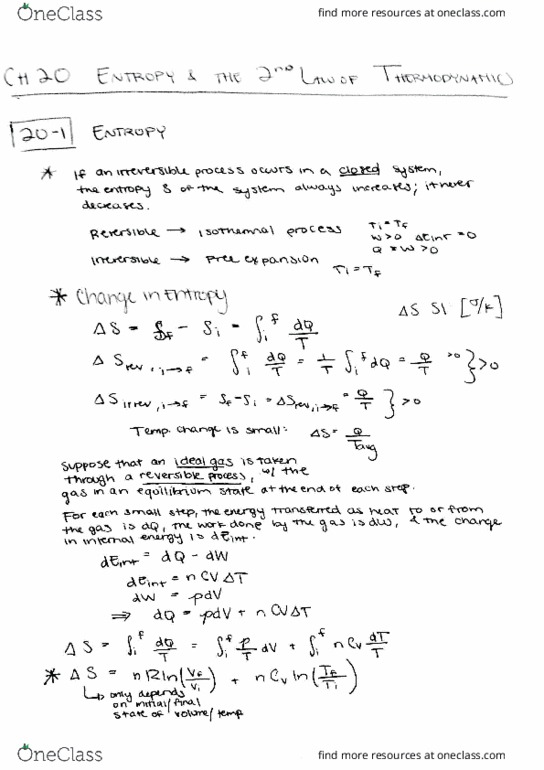 OneClass
find more resources at oneclass.com
CH 20 ENTROPY & THE 2ND LAW OF THERMODYNAMICS
20-1 ENTROPY
* If an irreversible process occurs in a closed system,
the entropy S of the system always increases; it never
decreases.
Reversible → Isothermal process
Ti = Tf
W>0 ΔEint = 0
Q = W > 0
Irreversible → Free expansion
Ti = Tf
* Change in Entropy
ΔS SI [J/K]
ΔS = Sf - Si = ∫i^f dQ/T
ΔSrev, i→f = ∫i^f dQ/T = 1/T ∫i^f dQ = Q/T >0 } >0
ΔSirrev, i→f = Sf - Si = ΔSrev, i→f = Q/T } >0
Temp. change is small: ΔS = Q/Tavg
Suppose that an ideal gas is taken
through a reversible process, w/ the
gas in an equilibrium state at the end of each step.
For each small step, the energy transferred as heat to or from
the gas is dQ, the work done by the gas is dW, & the change
in internal energy is dEint.
dEint = dQ - dW
dEint = nCVΔT
dW = pdV
⇒ dQ = pdV + nCVΔT
ΔS = ∫i^f dQ/T = ∫i^f p/T dV + ∫i^f nCv dT/T
* ΔS = nRln(Vf/Vi) + nCvln(Tf/Ti)
↳ only depends
on initial/final
state of volume/temp
OneClass
find more resources at oneclass.com